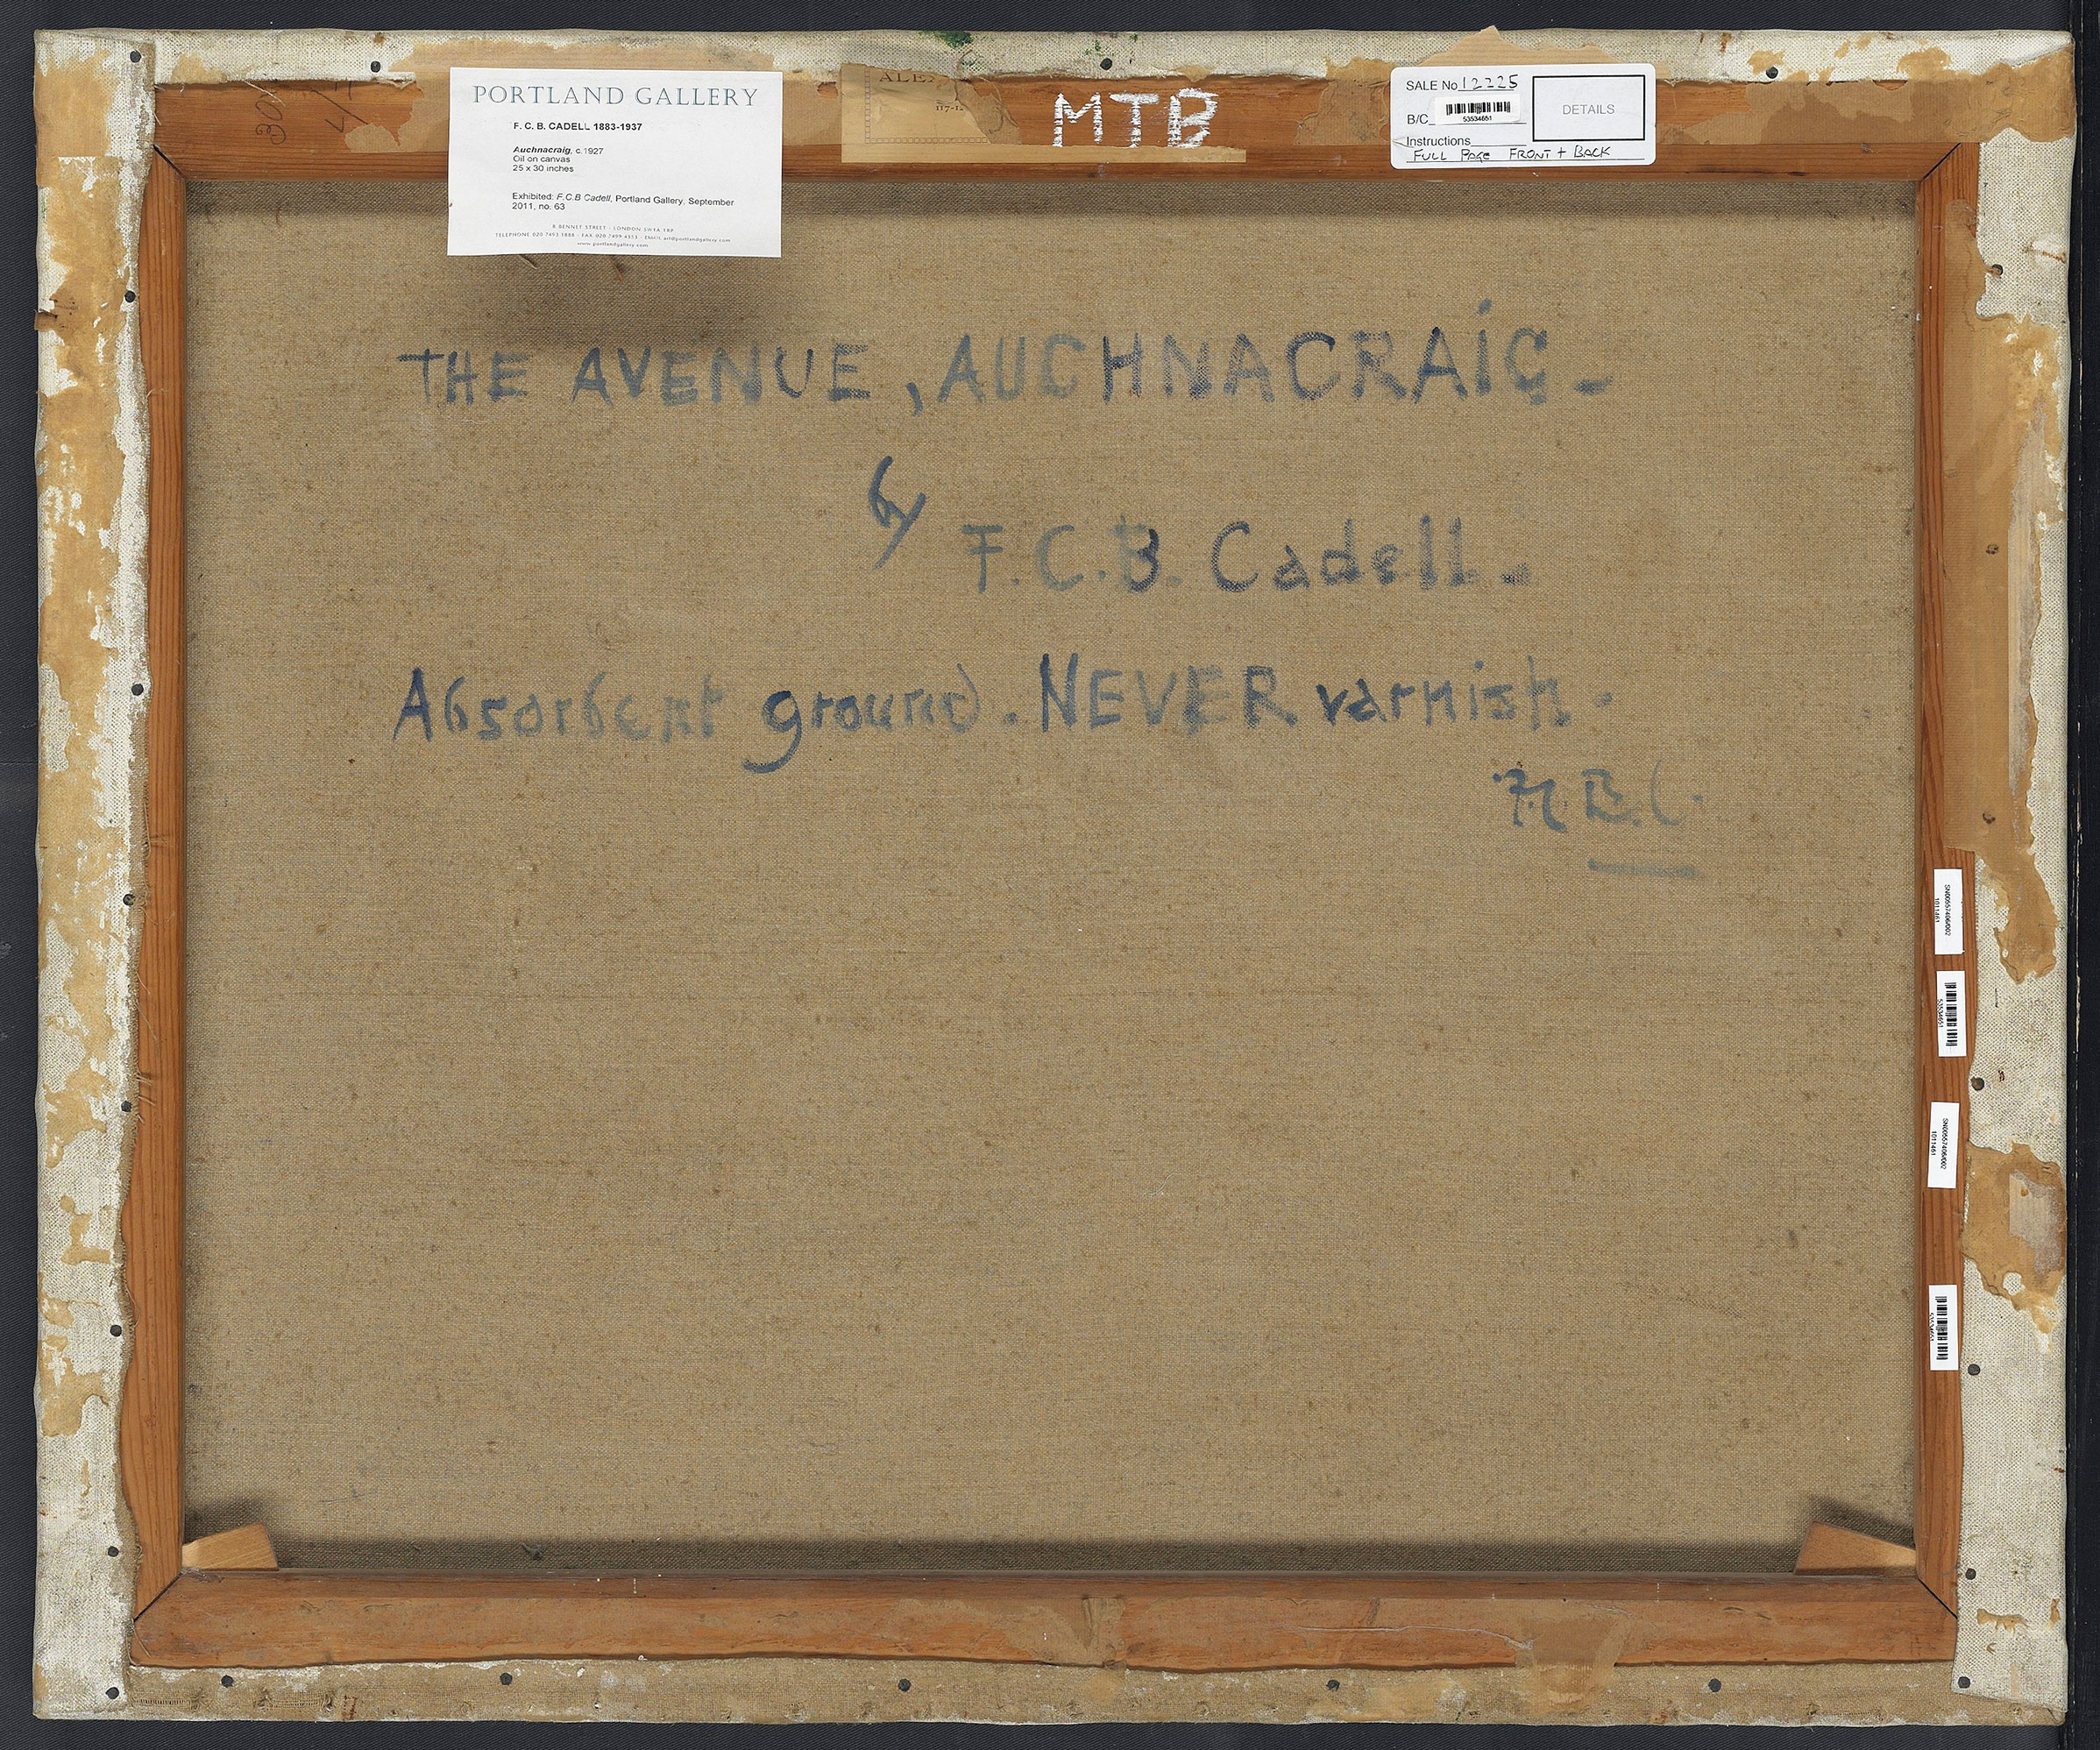 PORTLAND GALLERY
F. C. B. CADELL 1883-1937
Auchnacraig, c.1927
Oil on canvas
25 x 30 inches
Exhibited: F.C.B Cadell, Portland Gallery, September
2011, no. 63
8 BENNET STREET · LONDON SW1A 1RP
TELEPHONE 020 7493 1888 · FAX 020 7499 4353 · EMAIL art@portlandgallery.com
www.portlandgallery.com
MTB
SALE No 12225
B/C
53534651
DETAILS
Instructions
FULL PAGE FRONT + BACK
THE AVENUE, AUCHNACRAIG -
by
F.C.B. Cadell -
Absorbent ground. NEVER varnish.
F.C.B.C.
SN00557406/002
1011461
53534651
SN00557406/002
1011461
53534651